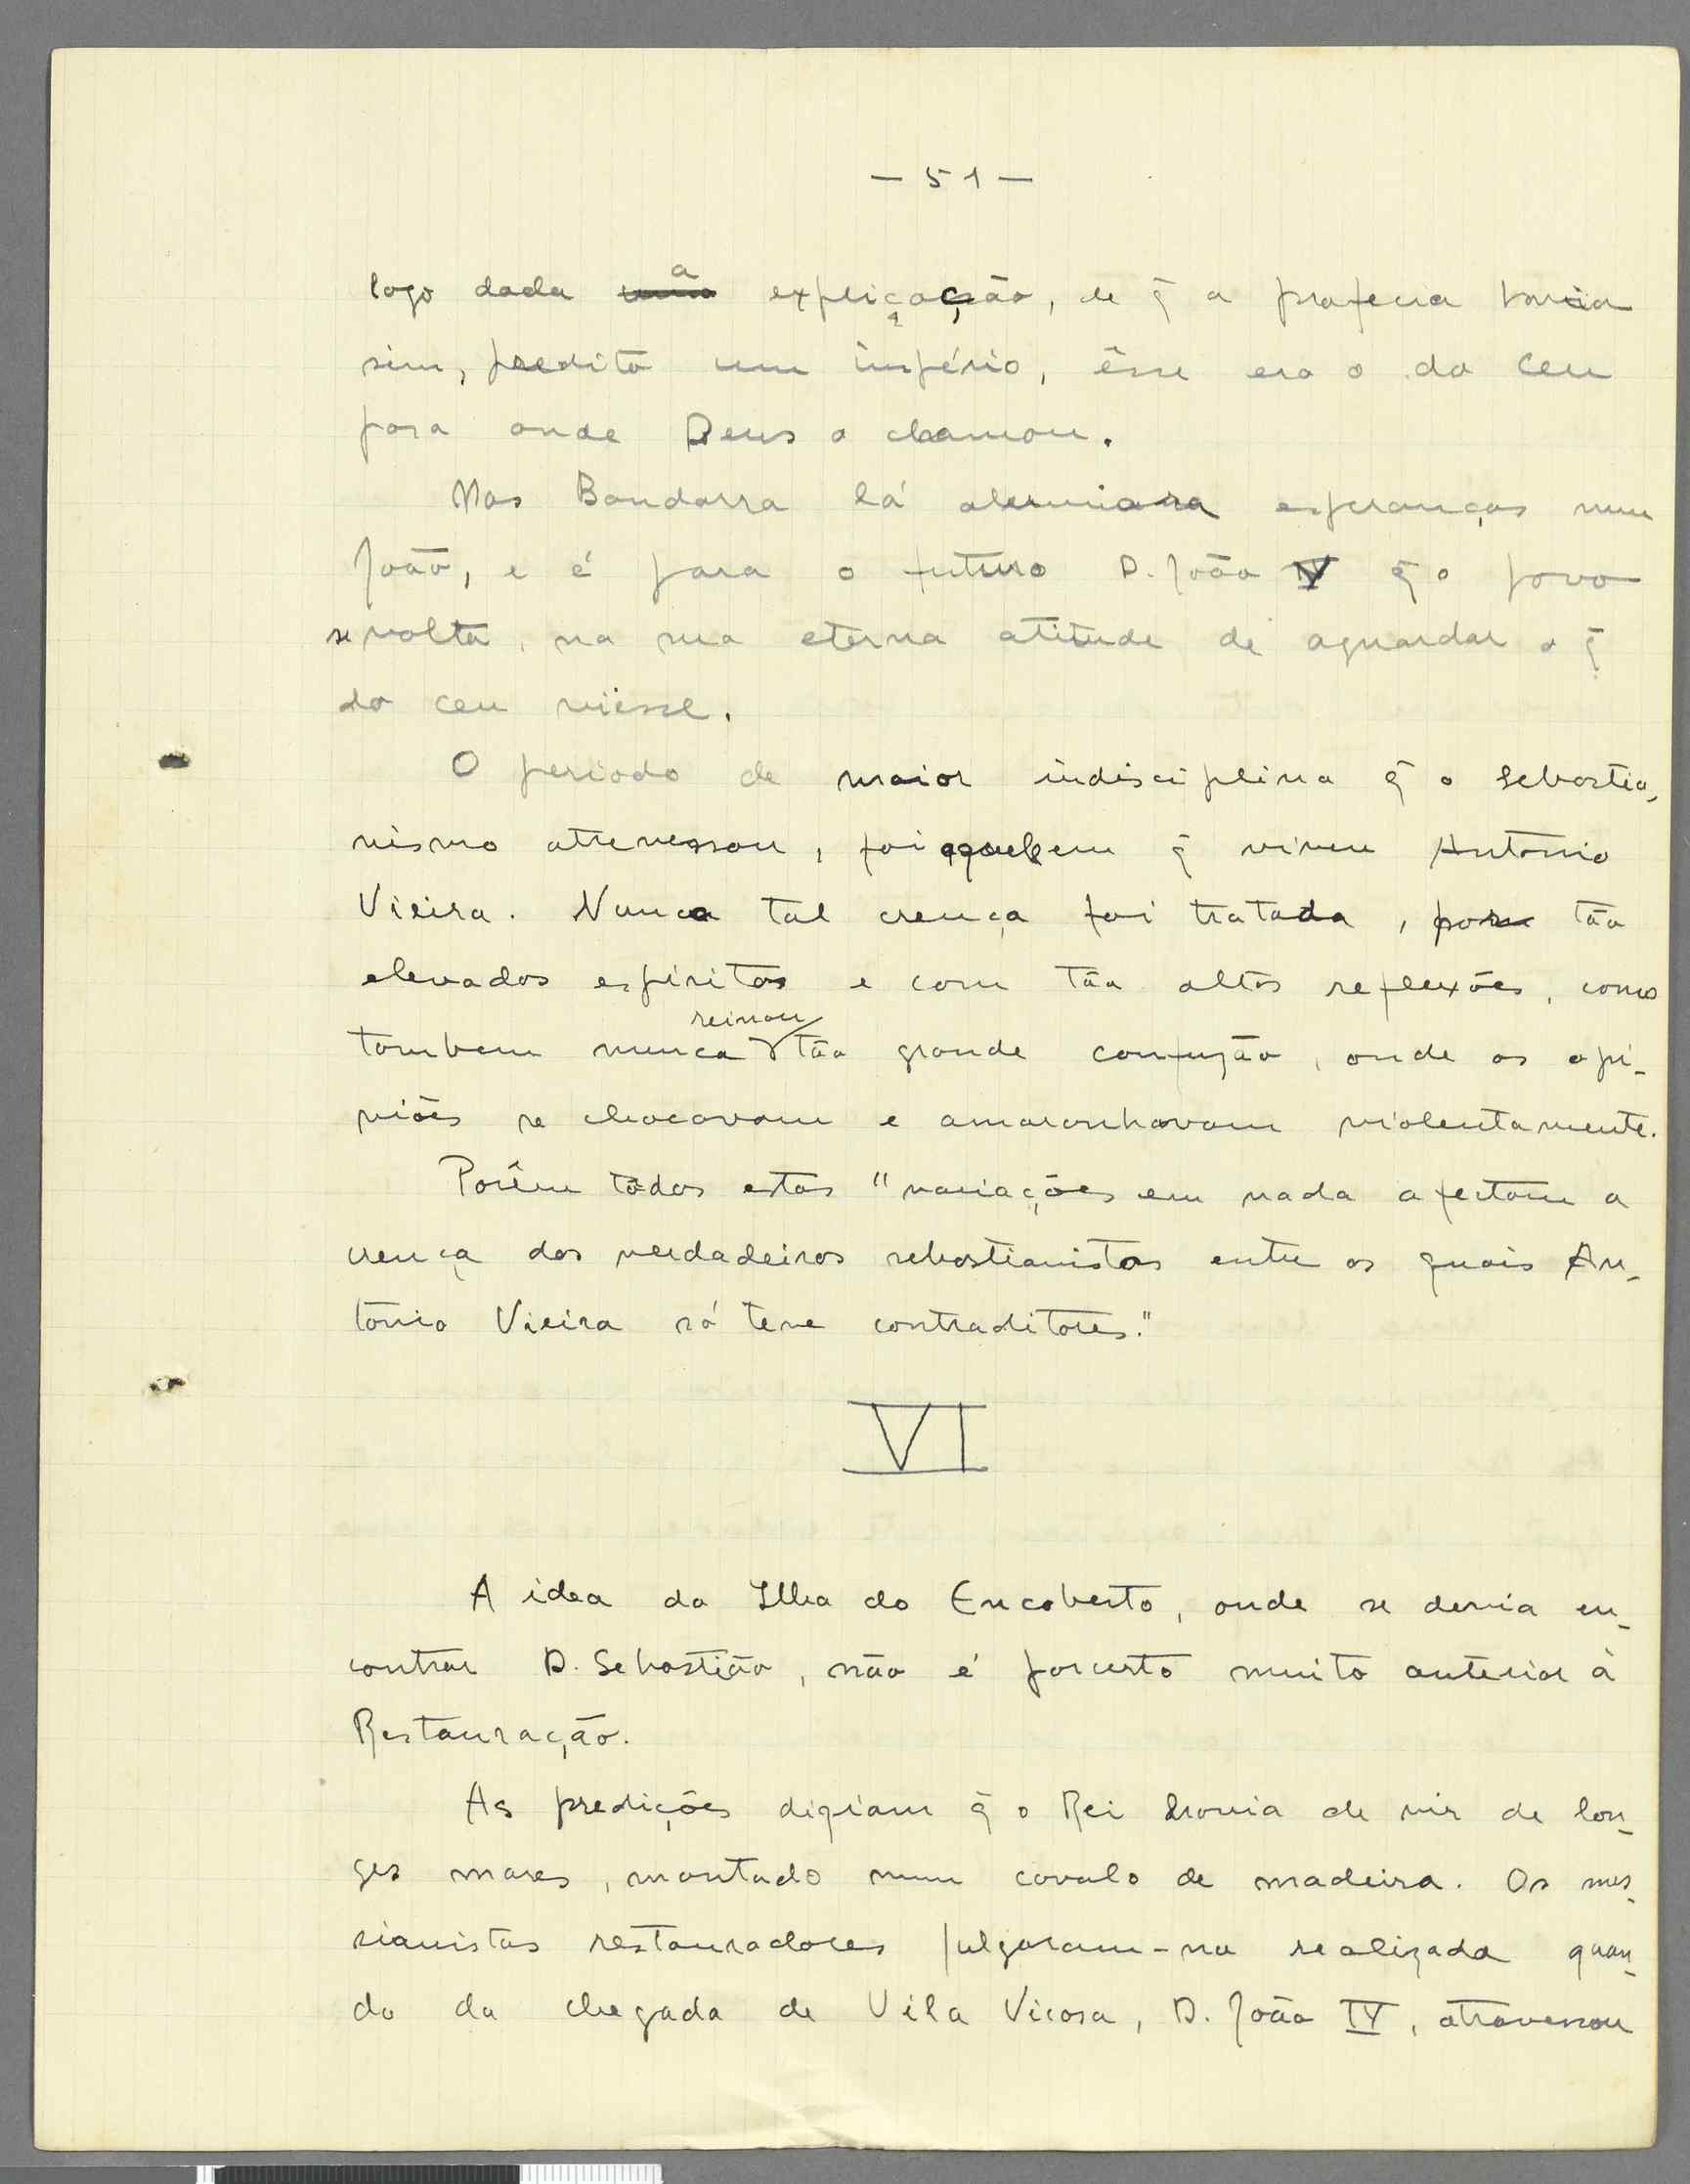 — 51 —
logo dada a explicação, de q̃ a profecia havia
sim, predito um império, êsse era o do ceu
para onde Deus o chamou.
Mas Bandarra lá alumiara esperanças num
João, e é para o futuro D. João V q̃ o povo
se volta, na sua eterna atitude de aguardar o q̃
do ceu viesse.
O periodo de maior indisciplina q̃ o Sebastia-
nismo atravessou, foi aquele em q̃ viveu António
Vieira. Nunca tal crença foi tratada, por tão
elevados espíritos e com tão altas reflexões, como
tambem nunca reinou tão grande confuzão, onde as opi-
niões se chocavam e amaranhavam violentamente.
Porêm todas estas "variações em nada afectam a
crença dos verdadeiros sebastianistas entre os quais An-
tónio Vieira só teve contraditores."
VI
A idea da Ilha do Encoberto, onde se devia en-
contrar D. Sebastião, não é porcerto muito anterior à
Restauração.
As predições diziam q̃ o Rei havia de vir de lon-
ges mares, montado num cavalo de madeira. Os mes-
sianistas restauradores julgaram-na realizada quan-
do da chegada de Vila Vicosa, D. João IV, atravessou